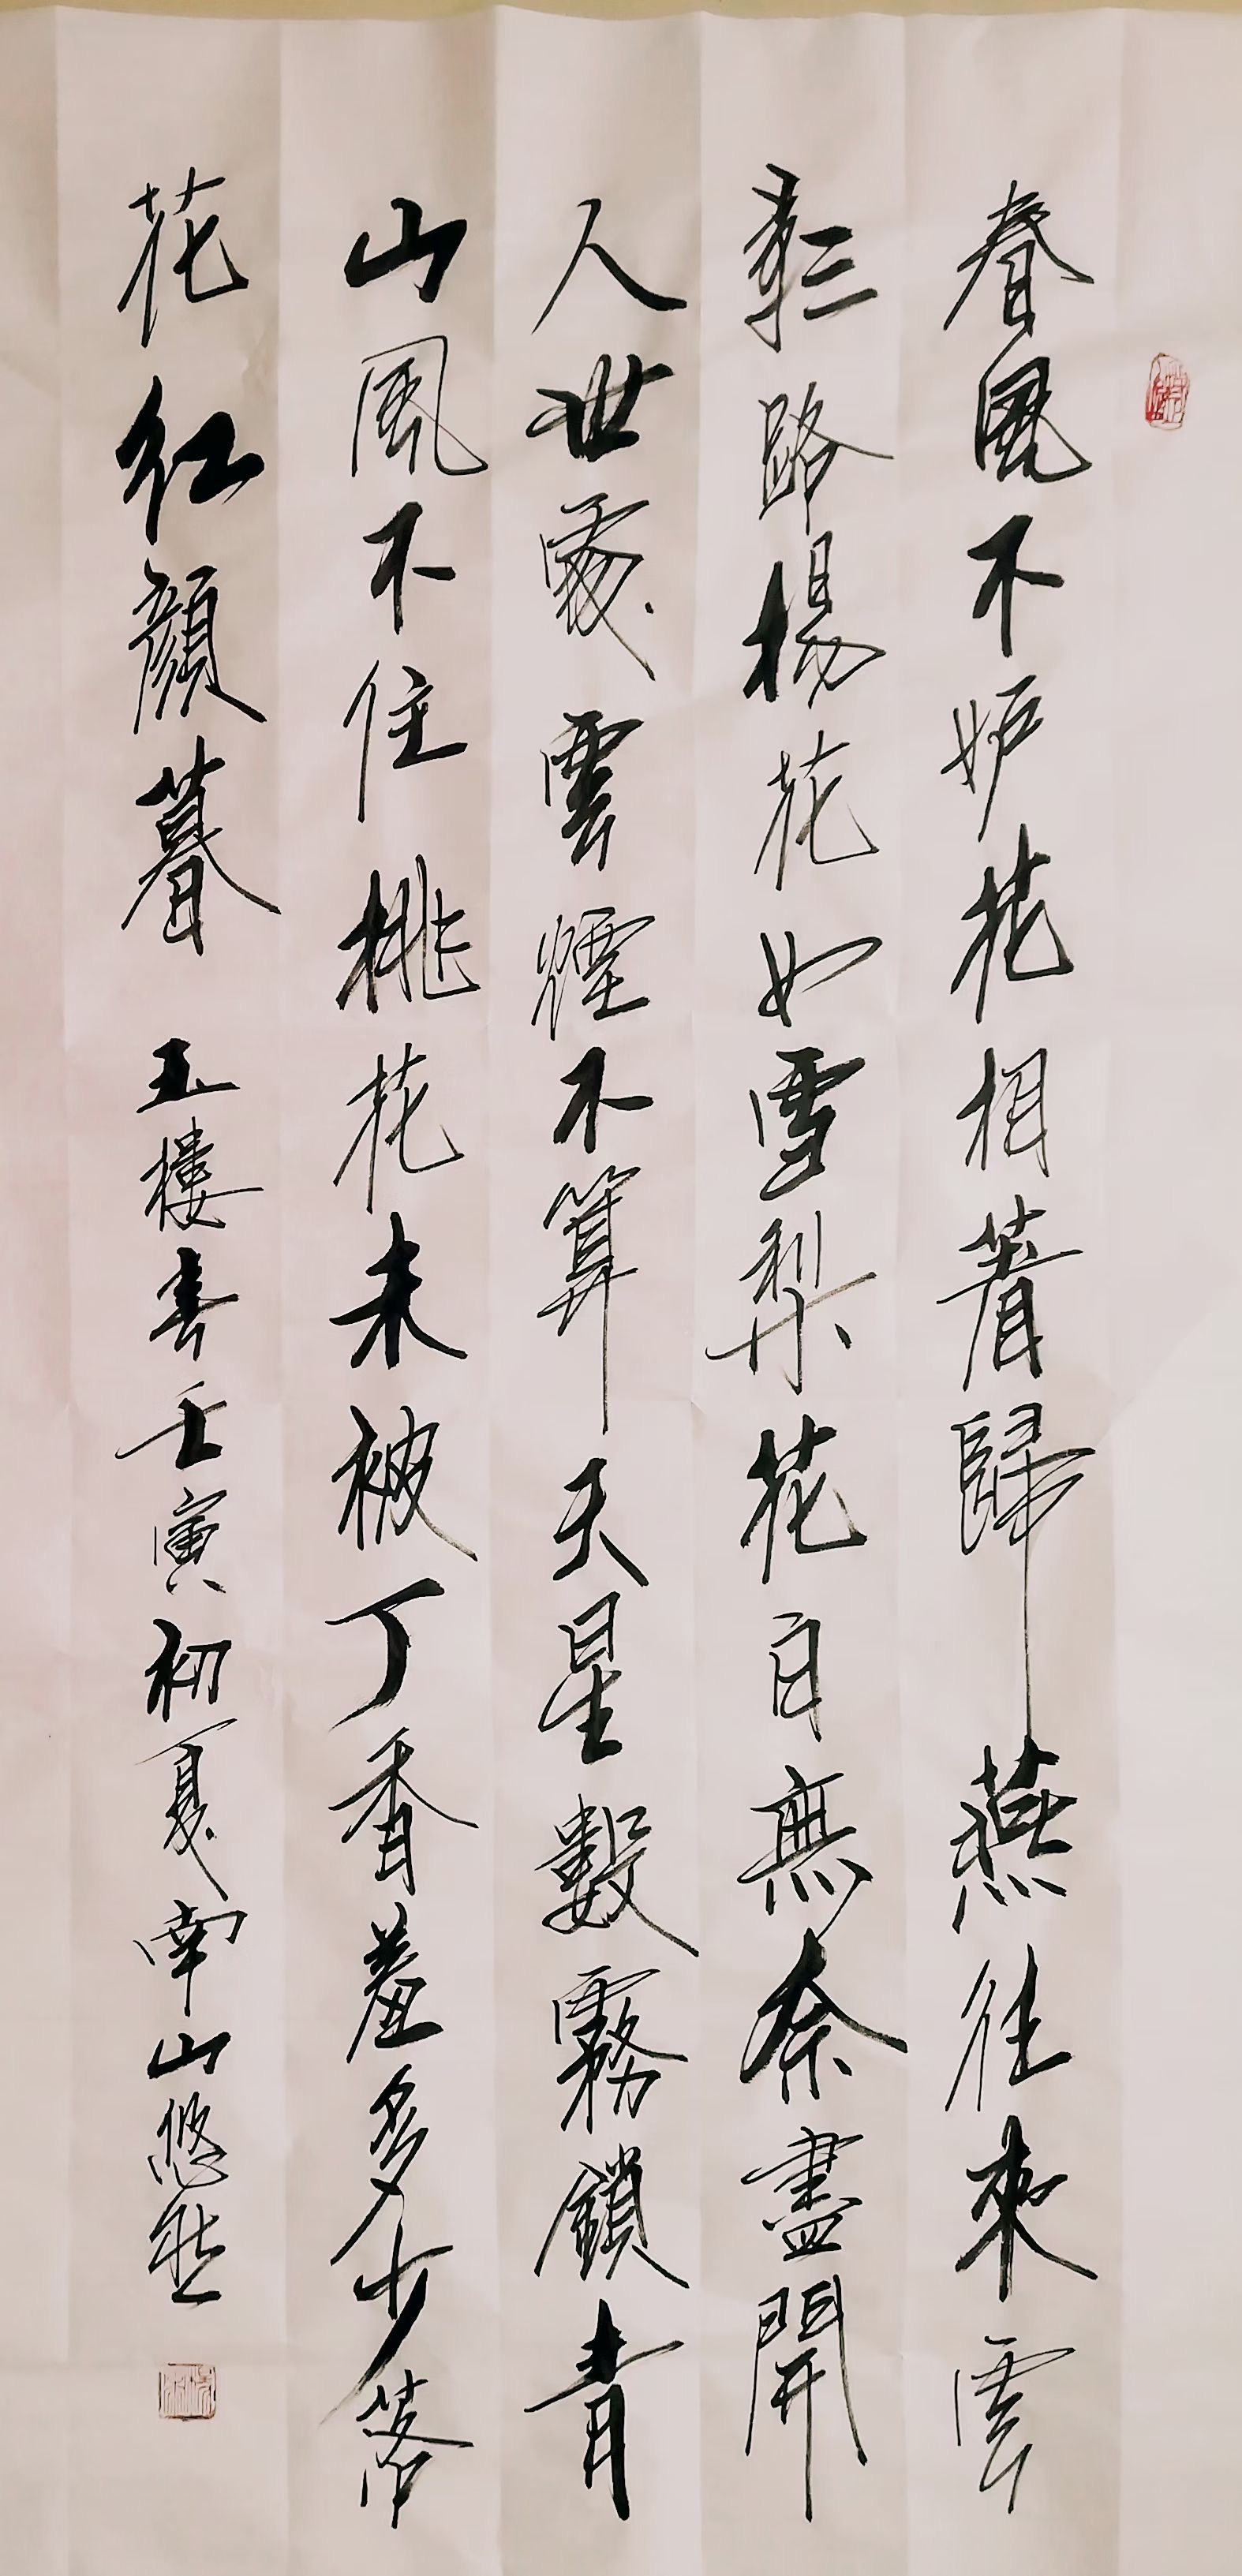 春風不妒花相著歸燕往來雲
路楊花如雪梨花白無奈盡開
人世處雲煙不算天星數霧鎖青
山風不住桃花未被丁香羞多少落
花紅顏暮 玉樓春壬寅初夏南山悠然